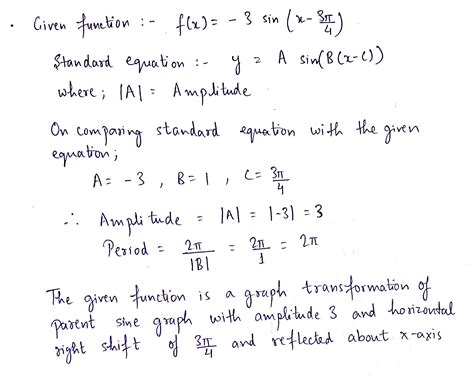 • Given function :- f(x) = - 3 sin (x - 3π/4)
Standard equation :- y = A sin(B(x-C))
where; |A| = Amplitude
On comparing standard equation with the given
equation;
A = -3 , B = 1 , C = 3π/4
∴ Amplitude = |A| = |-3| = 3
Period = 2π/|B| = 2π/1 = 2π
The given function is a graph transformation of
parent sine graph with amplitude 3 and horizontal
right shift of 3π/4 and reflected about x-axis